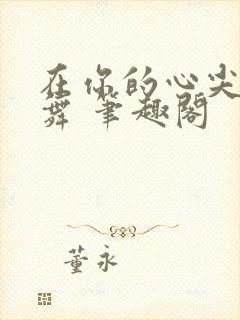 在你的心尖
舞 笔趣阁
董永